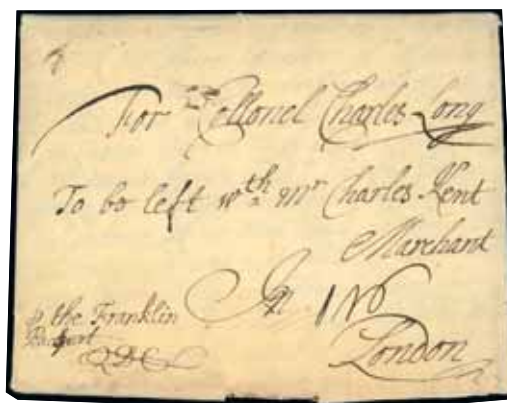 For Collonel Charles Long
To be left wth Mr Charles Kent
Marchant
In
London
p the Franklin
QDC